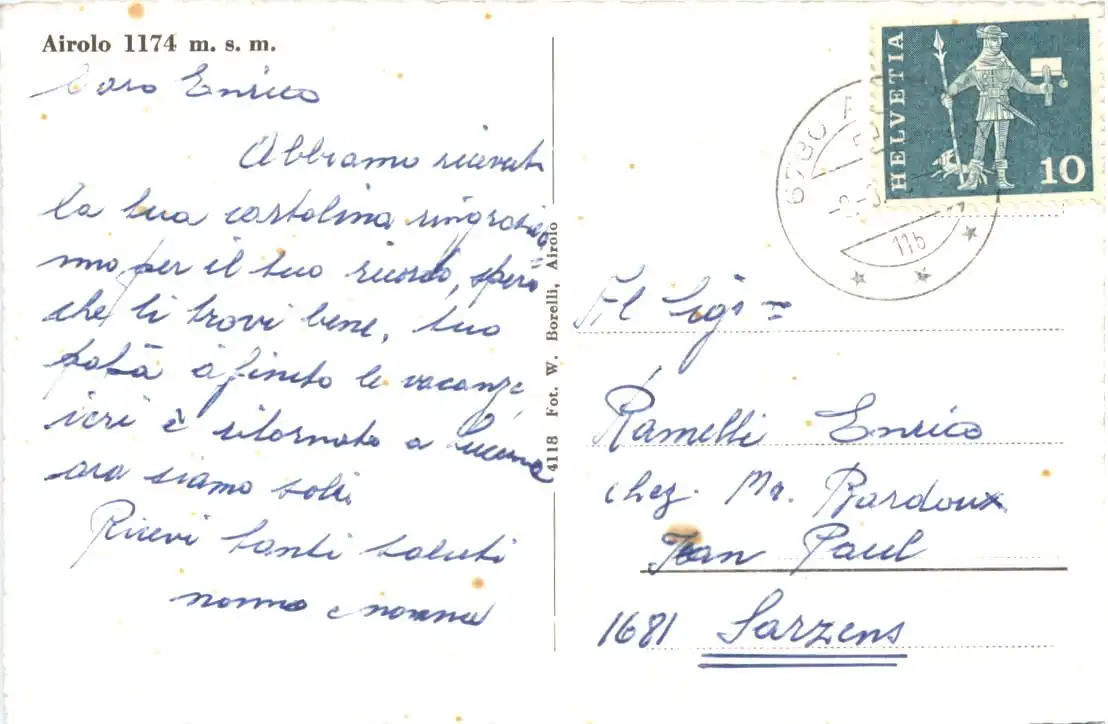 Airolo 1174 m. s. m.
Caro Enrico
Abbiamo ricevuto
la tua cartolina ringrazia
mo per il tuo ricordo, spero
che ti trovi bene, tuo
papà à finito le vacanze,
ieri è ritornato a Lucerna
ora siamo soli.
Ricevi tanti saluti
nonno e nonna
4118 Fot. W. Borelli, Airolo
HELVETIA
10
6780 A
116
Al Sig=
Ramelli Enrico
chez. Mr. Bardoux
Jean Paul
1681 Sarzens